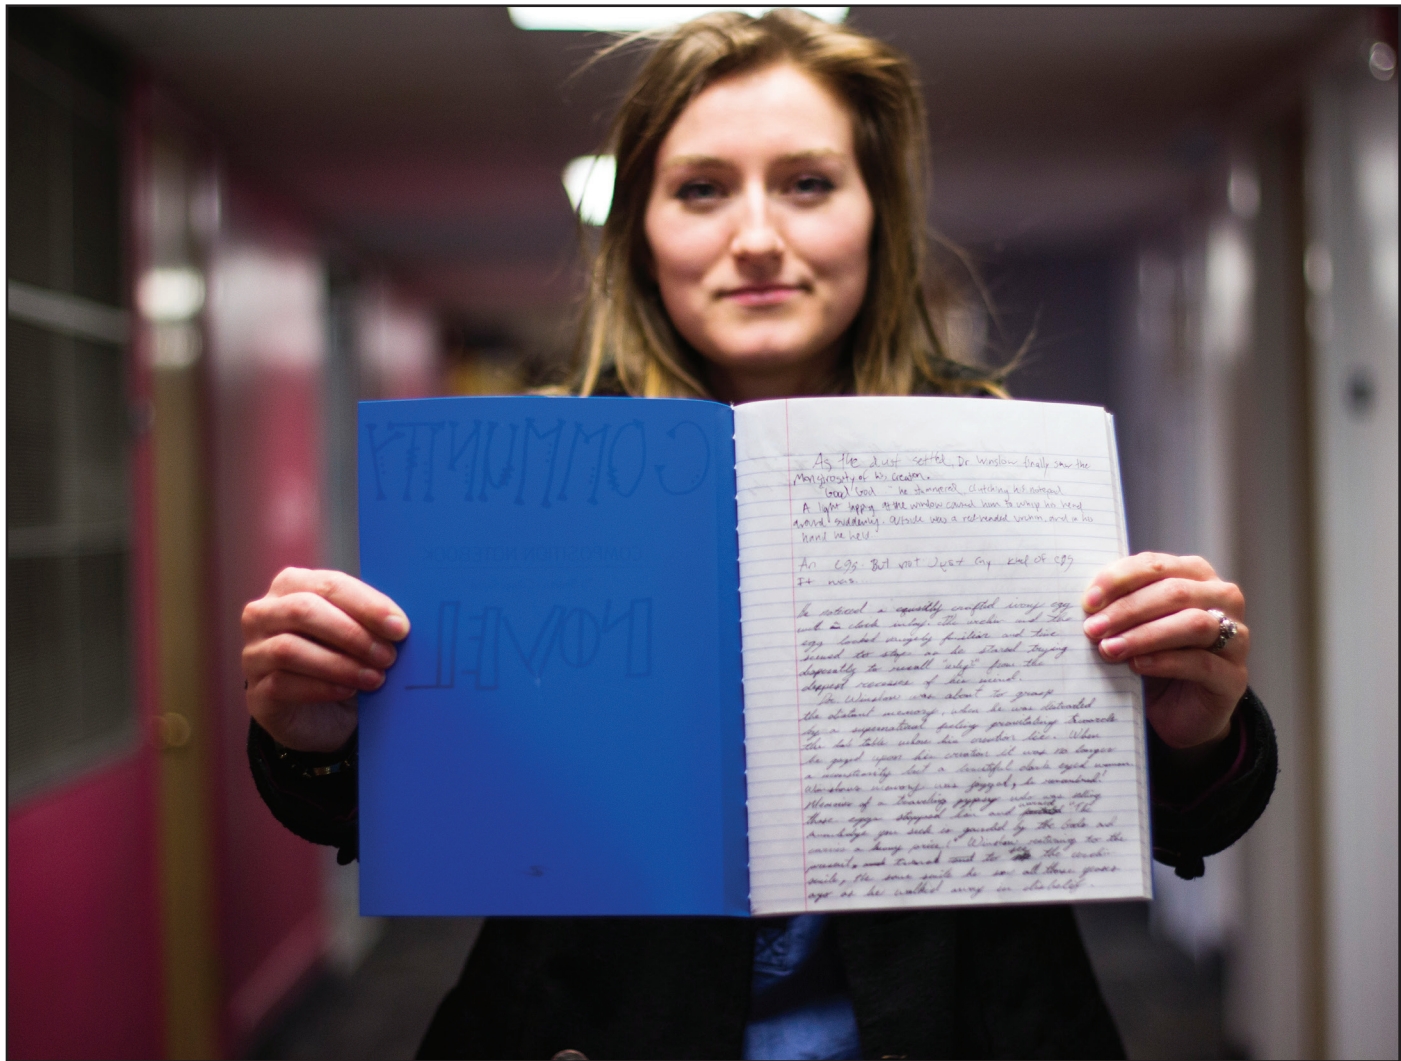 COMMUNITY
COMPOSITION NOTEBOOK
NOVEL
As the dust settled, Dr Winslow finally saw the
Monstrosity of his creation.
"Good God" he stammered, clutching his notepad.
A light tapping at the window caused him to whip his head
around suddenly. Outside was a red-headed woman, and in her
hand he held
An egg. But not Just any kind of egg
It was
he noticed a exquisitly crafted ivory egg
with a clock inlay. The woman and the
egg looked vaguely familiar and time
seemed to stop as he stared trying
desperately to recall "why?" from the
deepest recesses of his mind.
Dr. Winslow was about to grasp
the distant memory, when he was distracted
by a supernatural feeling towards
the lab table where his creation lie. When
he gazed upon his creation it was no longer
a monstrosity but a beautiful dark eyed woman
Winslow's memory was jogged, he remembered!
Memories of a traveling gypsy who was selling
those eggs stopped him and warned "The
knowledge you seek is guarded by the Gods and
carries a heavy price!" Winslow returning to the
present, and turned to see the
smile, the same smile he saw all those years
ago as he walked away in disbelief.